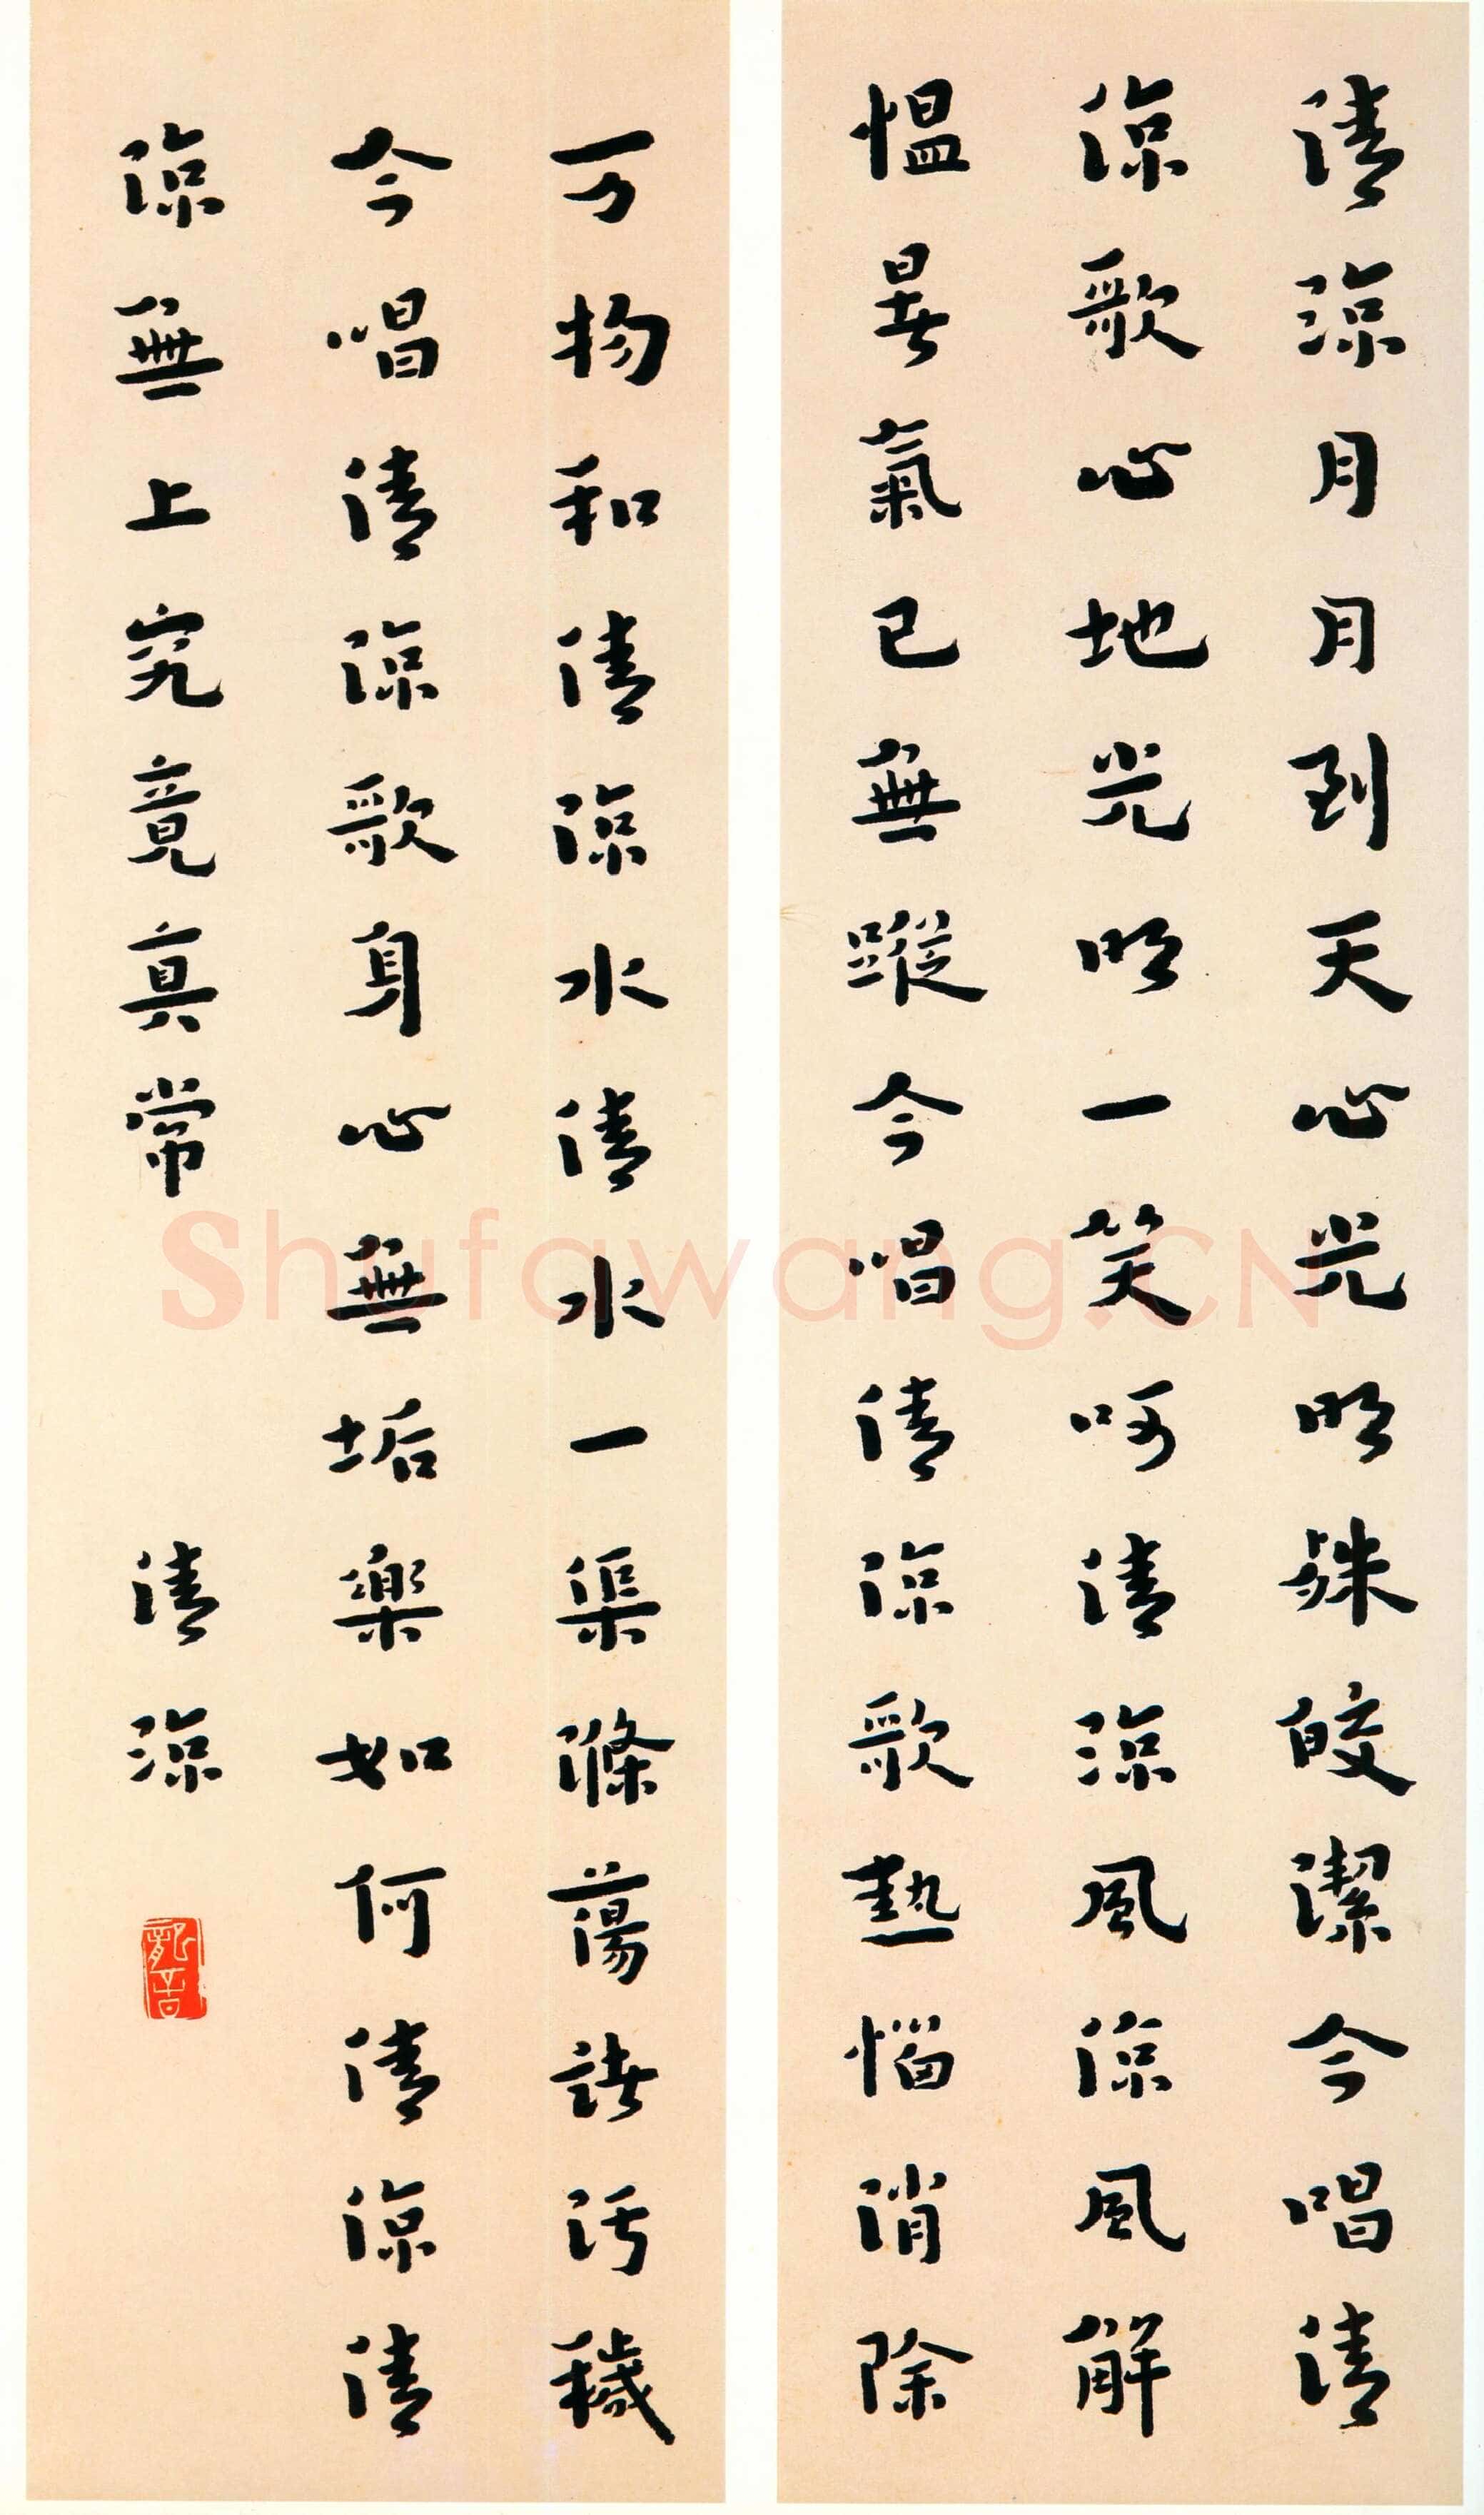 清涼月月到天心光明殊皎潔今唱清
涼歌心地光明一笑呵清涼風涼風解
慍暑氣已無蹤今唱清涼歌熱惱消除
万物和清涼水清水一渠滌蕩諸污穢
今唱清涼歌身心無垢樂如何清涼清
涼無上究竟真常
清涼
龍音
Shufawang.CN